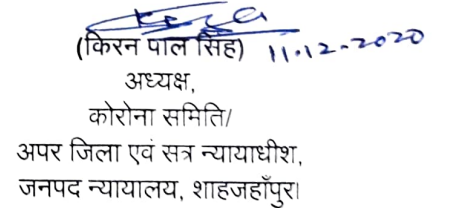 (किरन पाल सिंह) 11.12.2020
अध्यक्ष,
कोरोना समिति/
अपर जिला एवं सत्र न्यायाधीश,
जनपद न्यायालय, शाहजहाँपुर।